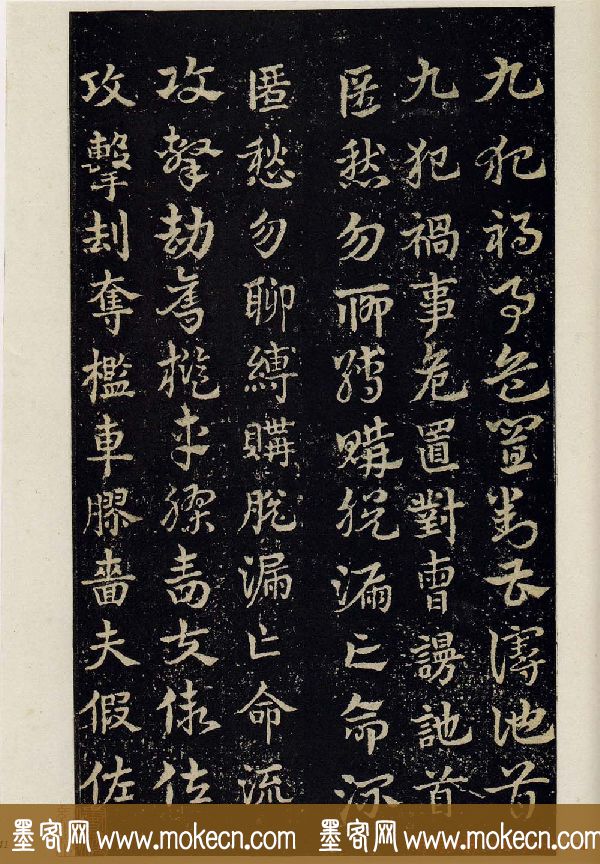 九犯禍事危置對曹謾訑首
九犯禍事危置對曹謾訑首
匿愁勿聊縛購脫漏亡命流
匿愁勿聊縛購脫漏亡命流
攻擊劫奪檻車膠嗇夫假佐
攻擊刦奪檻車膠嗇夫假佐
墨客网 www.mokecn.com 墨客网 www.mokecn.com